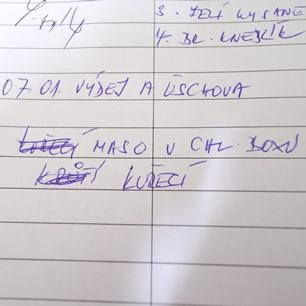 3. ZELÍ KYSANÉ
4. BR. KNEDLÍK
07.01. VÝDEJ A ÚSCHOVA
MASO V CHL. BOXU
KUŘECÍ